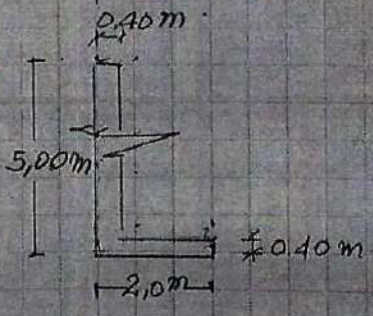 0,40m
5,00m
0.40m
2,0m